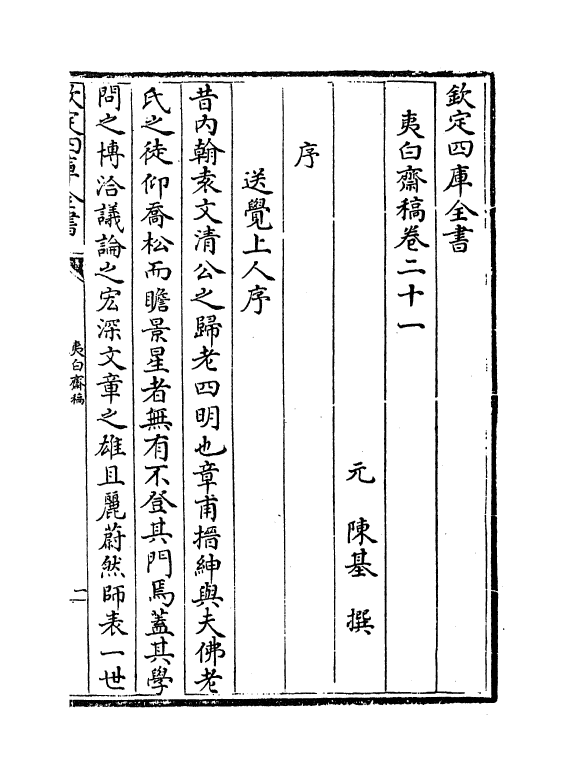 欽定四庫全書
夷白齋稿卷二十一
元 陳基 撰
序
送覺上人序
昔内翰袁文清公之歸老四明也章甫搢紳與夫佛老
氏之徒仰喬松而瞻景星者無有不登其門焉蓋其學
問之博洽議論之宏深文章之雄且麗蔚然師表一世
欽定四庫全書
夷白齋稿